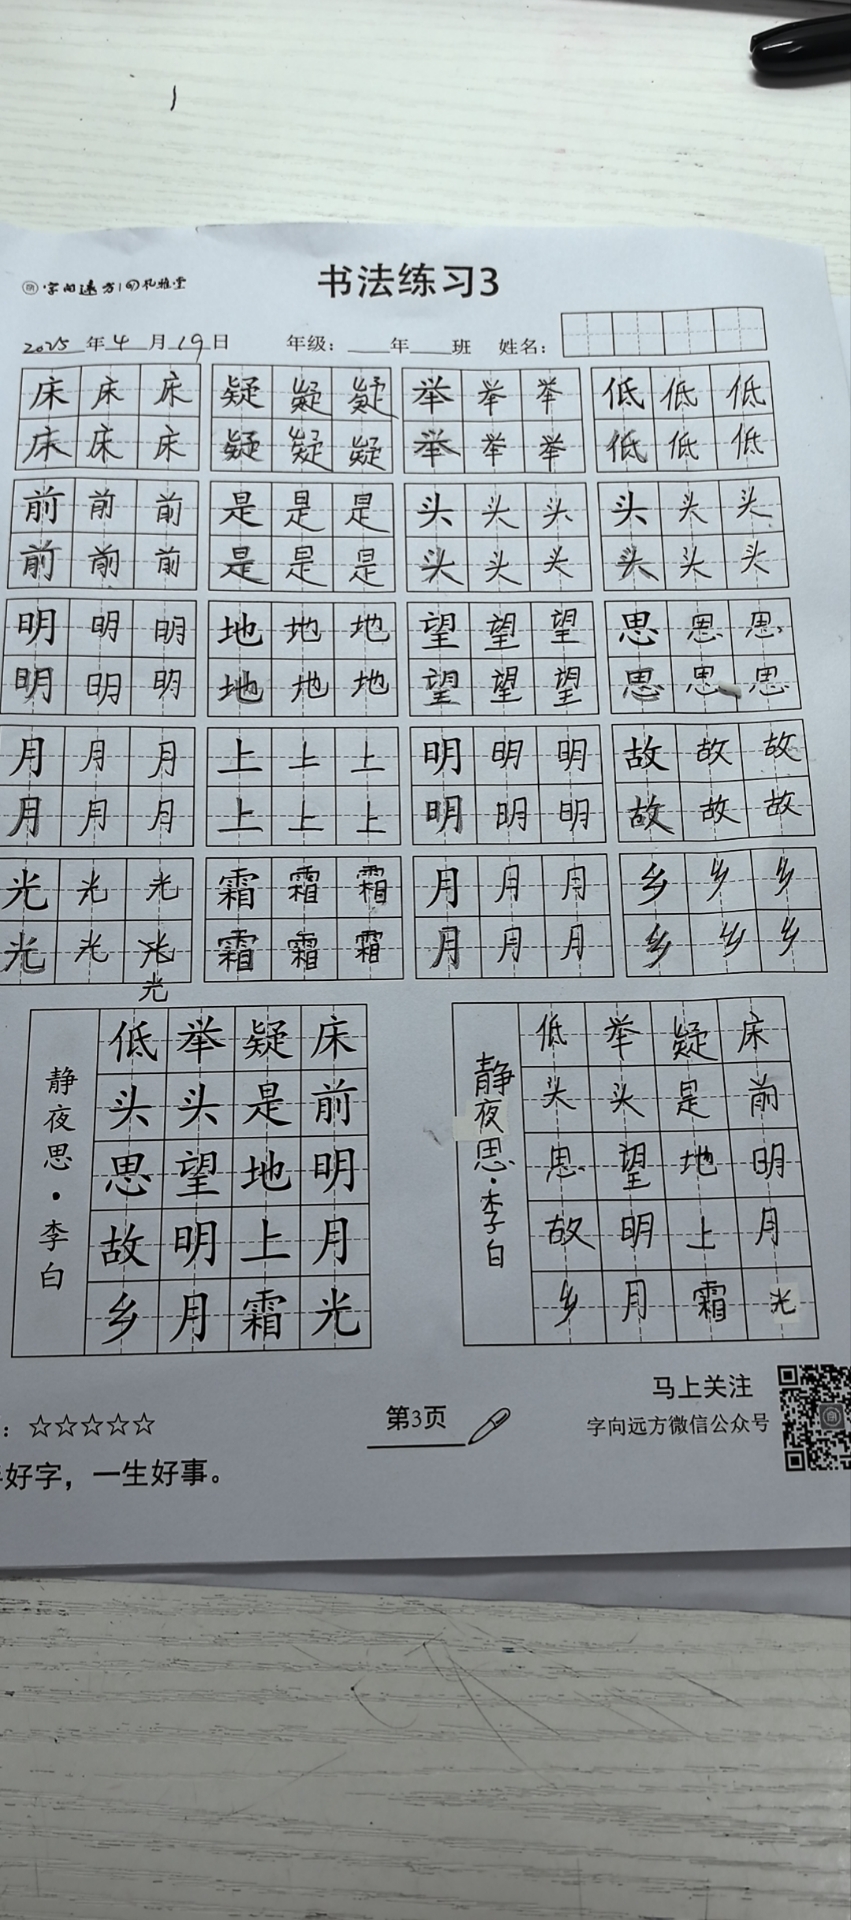 字向远方|的礼雅堂
书法练习3
2025年4月19日 年级:___年___班 姓名:
床床床 疑疑疑 举举举 低低低
床床床 疑疑疑 举举举 低低低
前前前 是是是 头头头 头头头
前前前 是是是 头头头 头头头
明明明 地地地 望望望 思思思
明明明 地地地 望望望 思思思
月月月 上上上 明明明 故故故
月月月 上上上 明明明 故故故
光光光 霜霜霜 月月月 乡乡乡
光光光 霜霜霜 月月月 乡乡乡
光
床前明月光
疑是地上霜
举头望明月
低头思故乡
静夜思·李白
床前明月光
疑是地上霜
举头望明月
低头思故乡
静夜思·李白
:☆☆☆☆☆
好字,一生好事。
第3页
马上关注
字向远方微信公众号